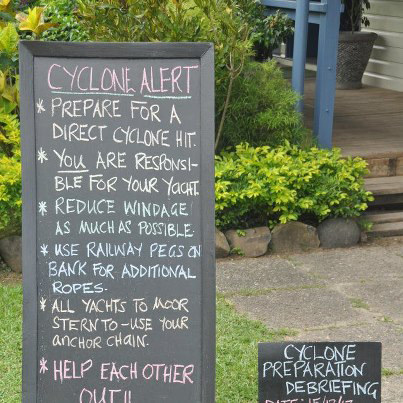 CYCLONE ALERT
* PREPARE FOR A
DIRECT CYCLONE HIT.
* YOU ARE RESPONSI-
BLE FOR YOUR YACHT.
* REDUCE WINDAGE
AS MUCH AS POSSIBLE.
* USE RAILWAY PEGS ON
BANK FOR ADDITIONAL
ROPES.
* ALL YACHTS TO MOOR
STERN TO - USE YOUR
ANCHOR CHAIN.
* HELP EACH OTHER
OUT!!
CYCLONE
PREPARATION
DEBRIEFING
DATE: